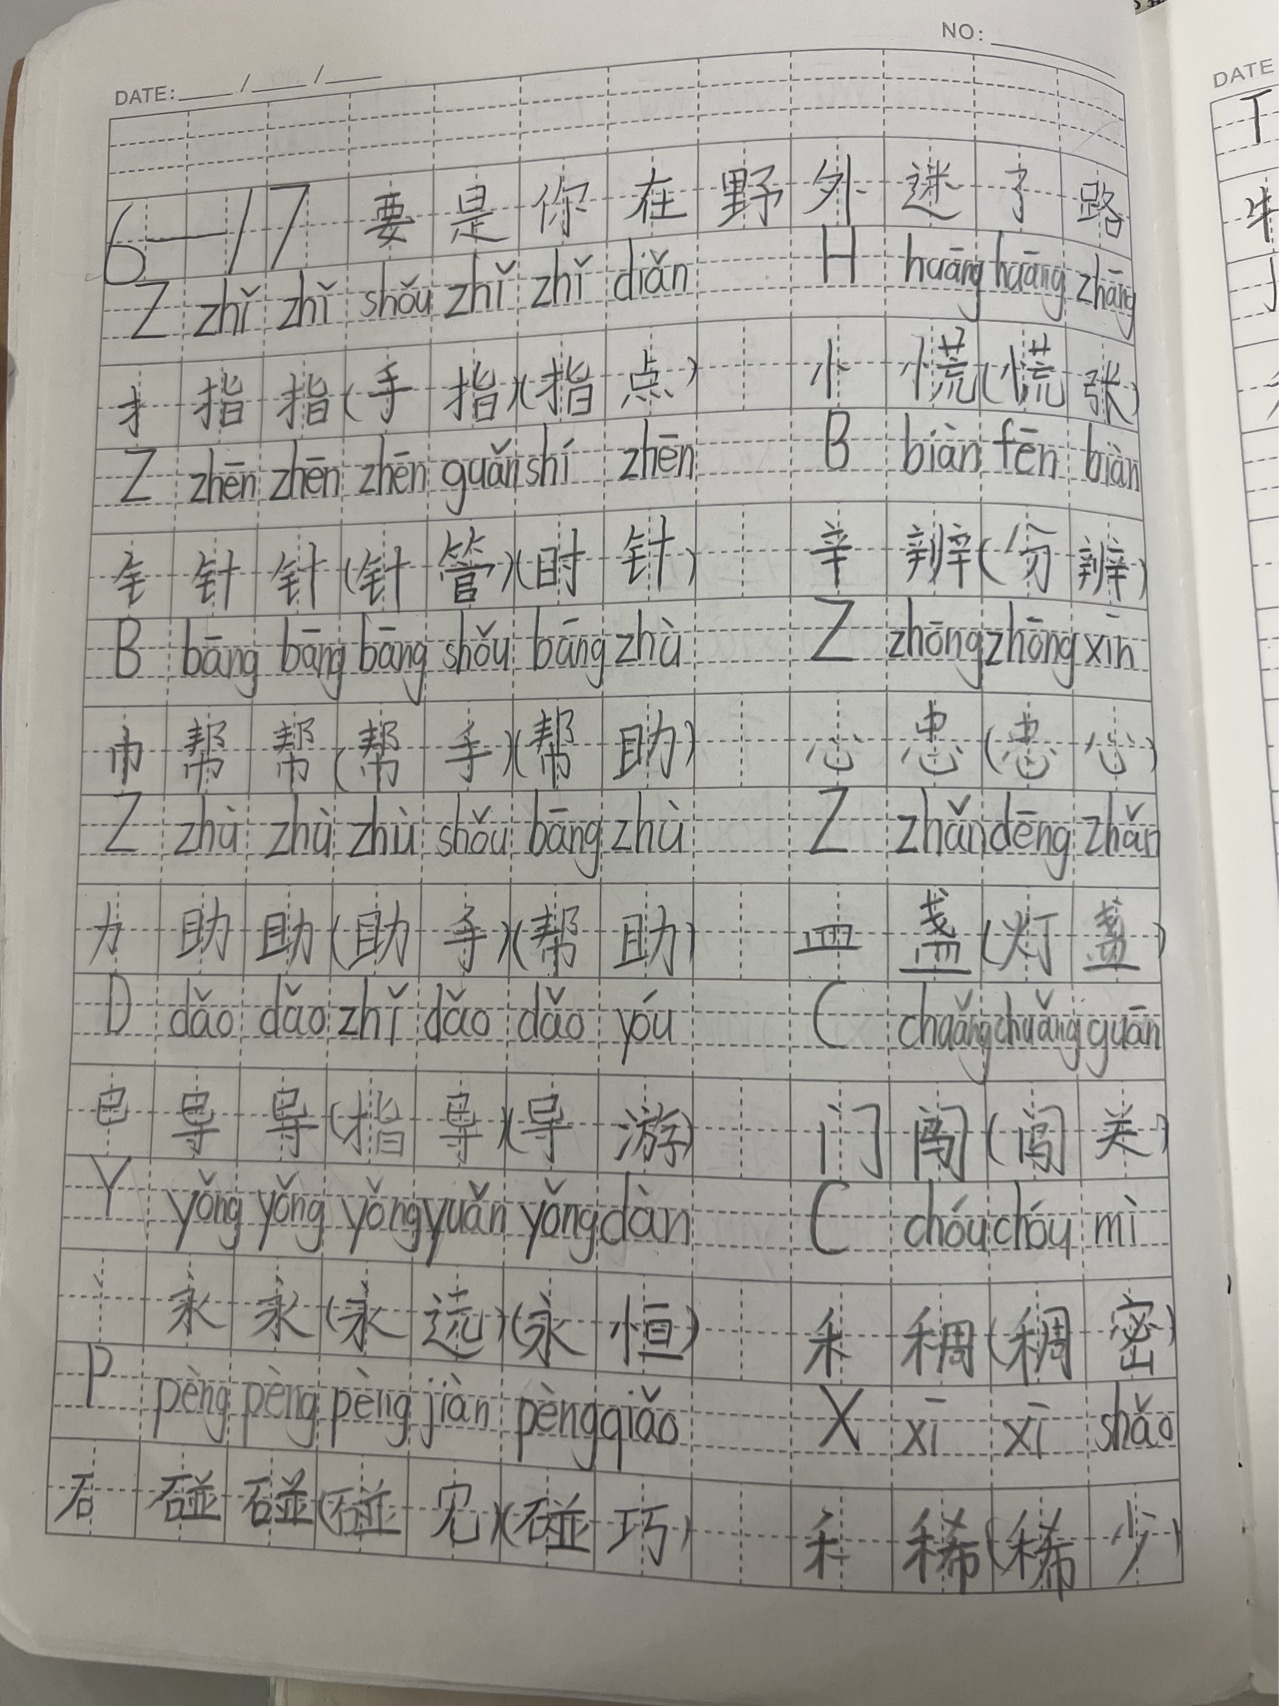 NO:
DATE: / /
DATE
6-17 要是你在野外迷了路
Z zhǐ zhǐ shǒu zhǐ zhǐ diǎn H huāng huāng zhāng
扌 指 指(手指)(指点) 忄 慌(慌张)
Z zhēn zhēn zhēn guǎn shí zhēn B biàn fēn biàn
钅 针 针(针管)(时针) 辛 辨(分辨)
B bāng bāng bāng shǒu bāng zhù Z zhōng zhōng xīn
巾 帮 帮(帮手)(帮助) 心 忠(忠心)
Z zhù zhù zhù shǒu bāng zhù Z zhǎn dēng zhǎn
力 助 助(助手)(帮助) 皿 盏(灯盏)
D dǎo dǎo zhǐ dǎo dǎo yóu C chuǎng chuǎng guān
巳 导 导(指导)(导游) 门 闯(闯关)
Y yǒng yǒng yǒng yuǎn yǒng dàn C chóu chóu mì
丶 永 永(永远)(永恒) 禾 稠(稠密)
P pèng pèng pèng jiàn pèng qiǎo X xī xī shǎo
石 碰 碰(碰见)(碰巧) 禾 稀(稀少)